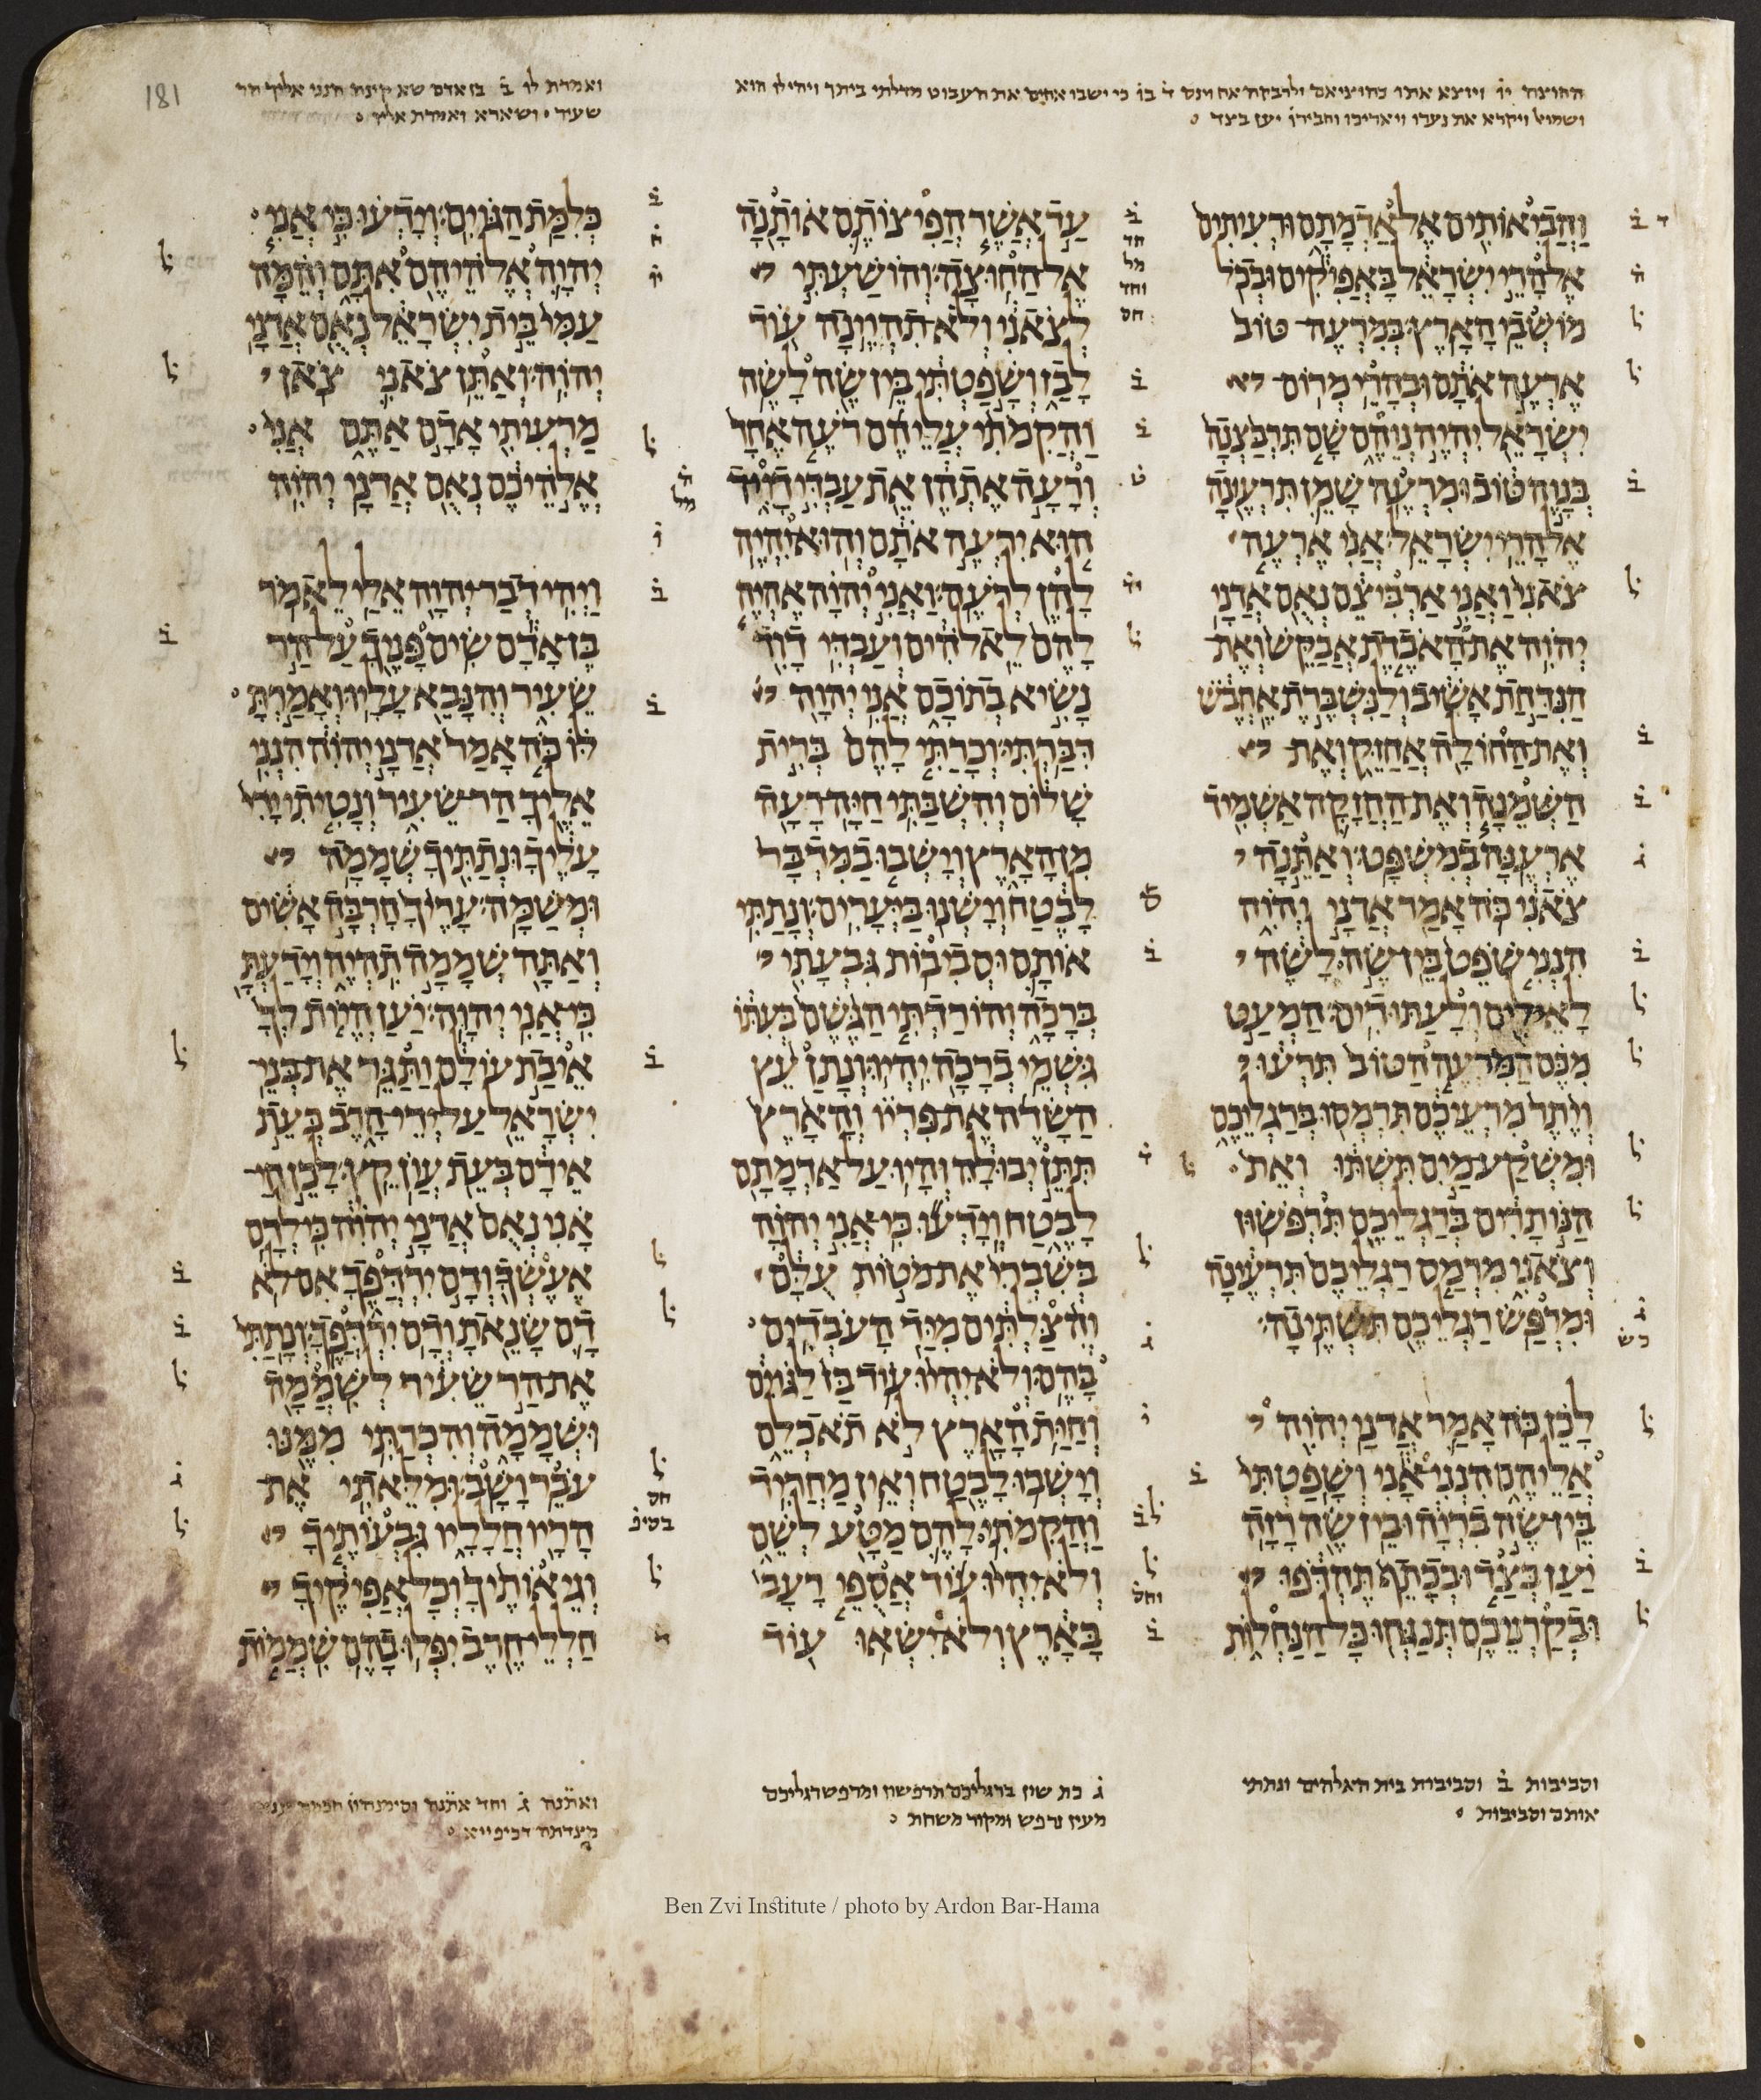 181
החוצה יו ויוצא אתו כהוציאם ולרבקה אח וינס ד בן כי ישבו אחים את העבוט מדלתי ביתך הוא
ושמואל ויקרא את נערו יען בצד
ואמרת לו ב בן אדם שא קינה הנני אליך הר
שעיר ושארא ואמרת אליו
וַהֲבִיאוֹתִים אֶל אַדְמָתָם וּרְעִיתִים
אֶל הָרֵי יִשְׂרָאֵל בָּאֲפִיקִים וּבְכֹל
מוֹשְׁבֵי הָאָרֶץ בְּמִרְעֶה טּוֹב
אֶרְעֶה אֹתָם וּבְהָרֵי מְרוֹם
יִשְׂרָאֵל יִהְיֶה נְוֵיהֶם שָׁם תִּרְבַּצְנָה
בְּנָוֶה טּוֹב וּמִרְעֶה שָׁמֵן תִּרְעֶינָה
אֶל הָרֵי יִשְׂרָאֵל אֲנִי אֶרְעֶה
צֹאנִי וַאֲנִי אַרְבִּיצֵם נְאֻם אֲדֹנָי
יְהוִה אֶת הָאֹבֶדֶת אֲבַקֵּשׁ וְאֶת
הַנִּדַּחַת אָשִׁיב וְלַנִּשְׁבֶּרֶת אֶחֱבֹשׁ
וְאֶת הַחוֹלָה אֲחַזֵּק וְאֶת
הַשְּׁמֵנָה וְאֶת הַחֲזָקָה אַשְׁמִיד
אֶרְעֶנָּה בְמִשְׁפָּט וְאַתֵּנָה
צֹאנִי כֹּה אָמַר אֲדֹנָי יְהוִה
הִנְנִי שֹׁפֵט בֵּין שֶׂה לָשֶׂה
לָאֵילִים וְלָעַתּוּדִים הַמְעַט
מִכֶּם הַמִּרְעֶה הַטּוֹב תִּרְעוּ
וְיֶתֶר מִרְעֵיכֶם תִּרְמְסוּ בְּרַגְלֵיכֶם
וּמִשְׁקַע מַיִם תִּשְׁתּוּ וְאֵת
הַנּוֹתָרִים בְּרַגְלֵיכֶם תִּרְפֹּשׂוּן
וְצֹאנִי מִרְמַס רַגְלֵיכֶם תִּרְעֶינָה
וּמִרְפַּשׂ רַגְלֵיכֶם תִּשְׁתֶּינָה
לָכֵן כֹּה אָמַר אֲדֹנָי יְהוִה
אֲלֵיהֶם הִנְנִי אָנִי וְשָׁפַטְתִּי
בֵּין שֶׂה בִרְיָה וּבֵין שֶׂה רָזָה
יַעַן בְּצַד וּבְכָתֵף תֶּהְדֹּפוּ
וּבְקַרְנֵיכֶם תְּנַגְּחוּ כָּל הַנַּחְלוֹת
עַד אֲשֶׁר הֲפִיצוֹתֶם אוֹתָנָה
אֶל הַחוּצָה וְהוֹשַׁעְתִּי
לְצֹאנִי וְלֹא תִהְיֶינָה עוֹד
לָבַז וְשָׁפַטְתִּי בֵּין שֶׂה לָשֶׂה
וַהֲקִמֹתִי עֲלֵיהֶם רֹעֶה אֶחָד
וְרָעָה אֶתְהֶן אֵת עַבְדִּי דָוִיד
הוּא יִרְעֶה אֹתָם וְהוּא יִהְיֶה
לָהֶן לְרֹעֶה וַאֲנִי יְהוָה אֶהְיֶה
לָהֶם לֵאלֹהִים וְעַבְדִּי דָוִד
נָשִׂיא בְתוֹכָם אֲנִי יְהוָה
דִּבַּרְתִּי וְכָרַתִּי לָהֶם בְּרִית
שָׁלוֹם וְהִשְׁבַּתִּי חַיָּה רָעָה
מִן הָאָרֶץ וְיָשְׁבוּ בַמִּדְבָּר
לָבֶטַח וְיָשְׁנוּ בַּיְּעָרִים וְנָתַתִּי
אוֹתָם וּסְבִיבוֹת גִּבְעָתִי
בְּרָכָה וְהוֹרַדְתִּי הַגֶּשֶׁם בְּעִתּוֹ
גִּשְׁמֵי בְרָכָה יִהְיוּ וְנָתַן עֵץ
הַשָּׂדֶה אֶת פִּרְיוֹ וְהָאָרֶץ
תִּתֵּן יְבוּלָהּ וְהָיוּ עַל אַדְמָתָם
לָבֶטַח וְיָדְעוּ כִּי אֲנִי יְהוָה
בְּשִׁבְרִי אֶת מֹטוֹת עֻלָּם
וְהִצַּלְתִּים מִיַּד הָעֹבְדִים
בָּהֶם וְלֹא יִהְיוּ עוֹד בַּז לַגּוֹיִם
וְחַיַּת הָאָרֶץ לֹא תֹאכְלֵם
וְיָשְׁבוּ לָבֶטַח וְאֵין מַחֲרִיד
וַהֲקִמֹתִי לָהֶם מַטָּע לְשֵׁם
וְלֹא יִהְיוּ עוֹד אֲסֻפֵי רָעָב
בָּאָרֶץ וְלֹא יִשְׂאוּ עוֹד
כְּלִמַּת הַגּוֹיִם וְיָדְעוּ כִּי אֲנִי
יְהוָה אֱלֹהֵיהֶם אִתָּם וְהֵמָּה
עַמִּי בֵּית יִשְׂרָאֵל נְאֻם אֲדֹנָי
יְהוִה וְאַתֵּן צֹאנִי צֹאן
מַרְעִיתִי אָדָם אַתֶּם אֲנִי
אֱלֹהֵיכֶם נְאֻם אֲדֹנָי יְהוִה
וַיְהִי דְבַר יְהוָה אֵלַי לֵאמֹר
בֶּן אָדָם שִׂים פָּנֶיךָ עַל הַר
שֵׂעִיר וְהִנָּבֵא עָלָיו וְאָמַרְתָּ
לּוֹ כֹּה אָמַר אֲדֹנָי יְהוִה הִנְנִי
אֵלֶיךָ הַר שֵׂעִיר וְנָטִיתִי יָדִי
עָלֶיךָ וּנְתַתִּיךָ שְׁמָמָה
וּמְשַׁמָּה עָרֶיךָ חָרְבָּה אָשִׂים
וְאַתָּה שְׁמָמָה תִהְיֶה וְיָדַעְתָּ
כִּי אֲנִי יְהוָה יַעַן הֱיוֹת לְךָ
אֵיבַת עוֹלָם וַתַּגֵּר אֶת בְּנֵי
יִשְׂרָאֵל עַל יְדֵי חָרֶב בְּעֵת
אֵידָם בְּעֵת עֲוֹן קֵץ לָכֵן חַי
אָנִי נְאֻם אֲדֹנָי יְהוִה כִּי לְדָם
אֶעֶשְׂךָ וְדָם יִרְדֲּפֶךָ אִם לֹא
דָם שָׂנֵאתָ וְדָם יִרְדֲּפֶךָ וְנָתַתִּי
אֶת הַר שֵׂעִיר לְשִׁמֲמָה
וּשְׁמָמָה וְהִכְרַתִּי מִמֶּנּוּ
עֹבֵר וָשָׁב וּמִלֵּאתִי אֶת
הָרָיו חֲלָלָיו גִּבְעוֹתֶיךָ
וְגֵאוֹתֶיךָ וְכָל אֲפִיקֶיךָ
חַלְלֵי חֶרֶב יִפְּלוּ בָהֶם שִׁמֲמוֹת
וסביבות ב וסביבות בית האלהים ונתתי
אותם וסביבות
ג כת שין ברגליכם תרפשון ומרפש רגליכם
מעין נרפש ומקור משחת
ואתנה ג וחד אתנה וסימנהון
Ben Zvi Institute / photo by Ardon Bar-Hama